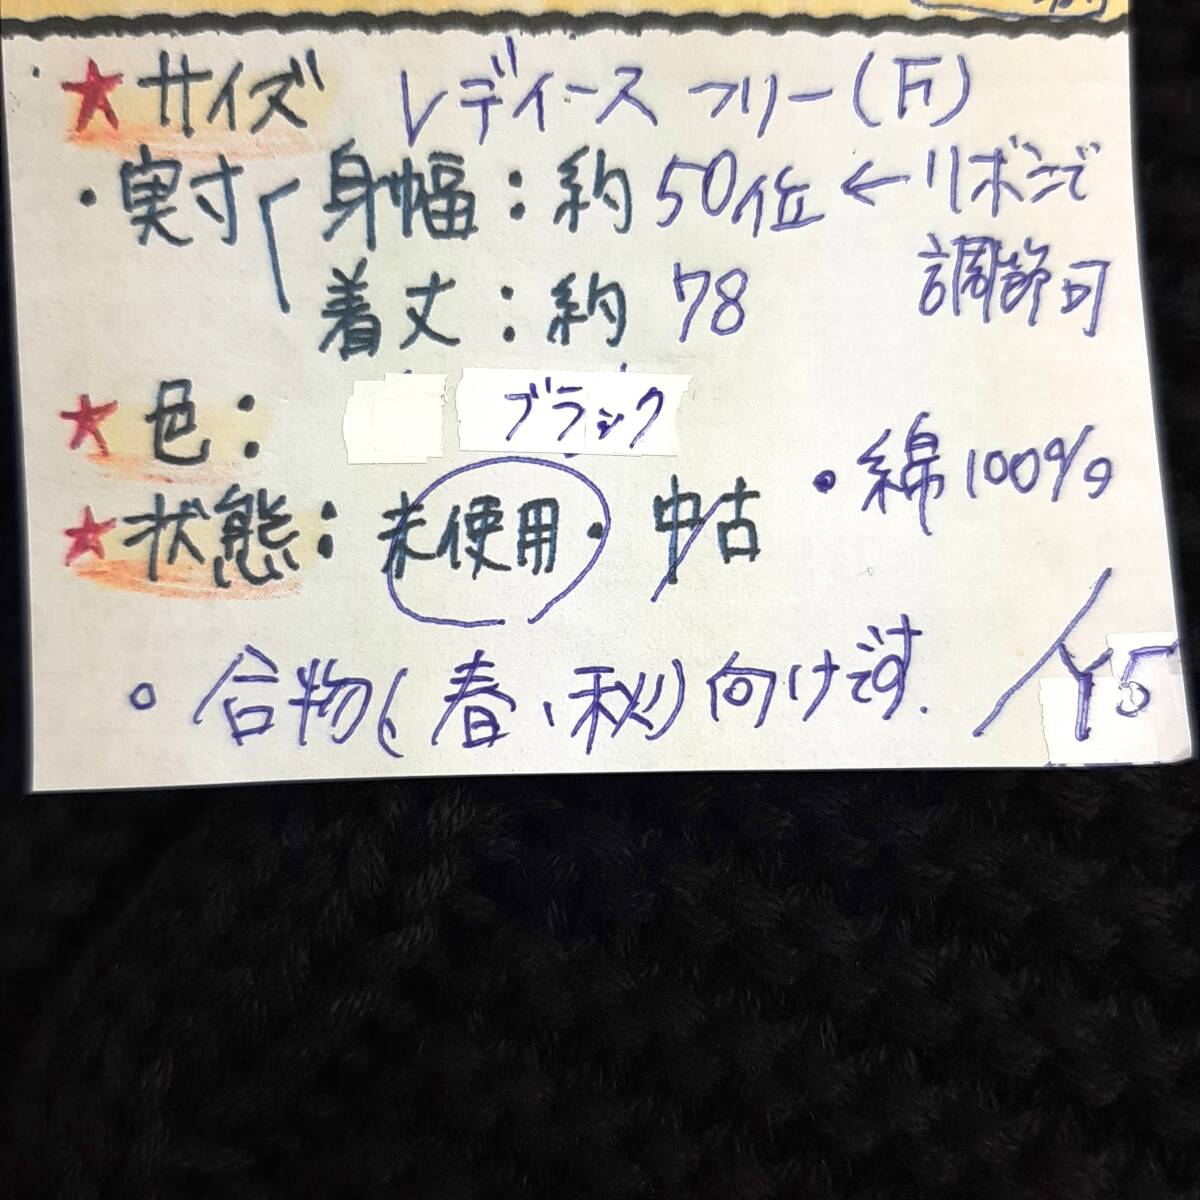 ★サイズ レディース フリー(F)
・実寸 身幅:約50位 ← リボンで
調節可
着丈:約78
★色: ブラック
・綿100%
★状態:未使用・中古
○合物(春、秋)向けです.